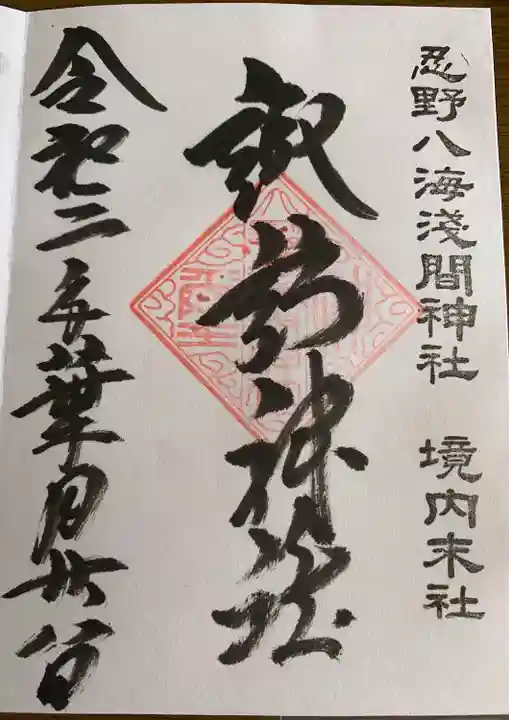 忍野八海淺間神社 境内末社
諏訪神社
令和二年葉月廿八日